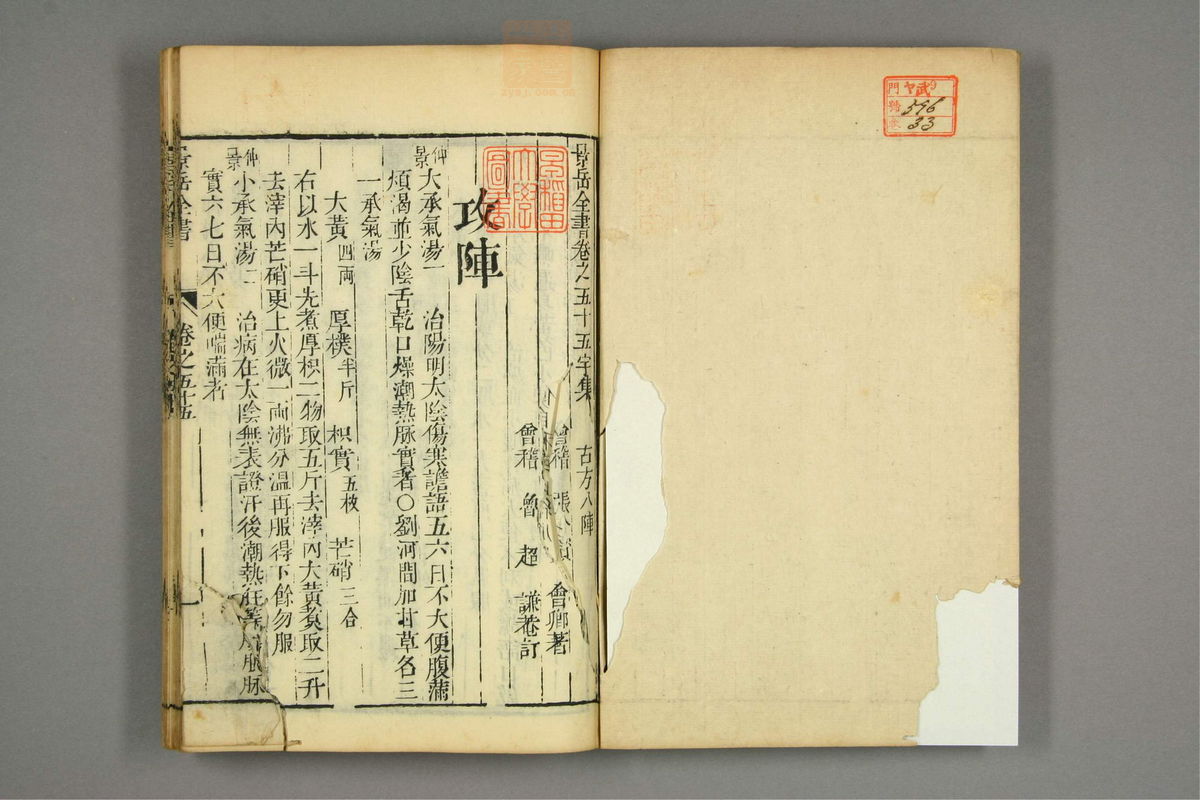 門 ヤ武9
號 596
卷 33
景岳全書卷之五十五宇集 古方八陣
會稽 張 會卿著
會稽 魯 超 謙菴訂
早稲田大學圖書
攻陣
仲景大承氣湯一 治陽明太陰傷寒譫語五六日不大便腹滿
煩渴並少陰舌乾口燥潮熱脉實者○劉河間加甘草名三
一承氣湯
大黃四兩 厚樸半斤 枳實五枚 芒硝三合
右以水一斗先煮厚枳二物取五斤去滓內大黃煑取二升
去滓內芒硝更上火微一兩沸分溫再服得下餘勿服
仲景小承氣湯二 治病在太陰無表證汗後潮熱狂等脹脉
實六七日不大便喘滿者
景岳全書 卷之五十五 一